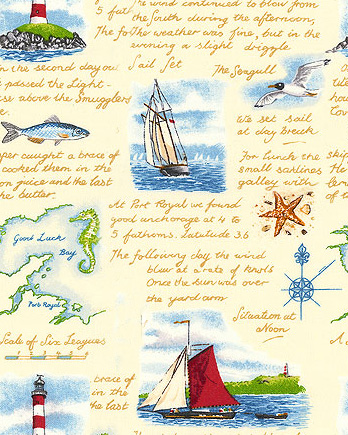 the wind continued to blow from
5 fat
the South during the afternoon,
The fo
The weather was fine, but in the
evening a slight driggle.
Sail Set
The Seagull
in the second day ou
passed the Light-
se above the Smugglers
We set sail
at day breick
per caught a brace of
cooked them in the
on juice and the last
the butter
For lunch the
small sardines
galley with
skip
At Port Royal we found
good anchorage at 4 to
5 fathoms. Latitude 36
Good Luck
Bay
The following day the wind
blew at a rate of knots
Once the sun was over
the yard arm
Port Royal
Situation at
Noon
Scale of Six Leagues
brace of
in the
the last